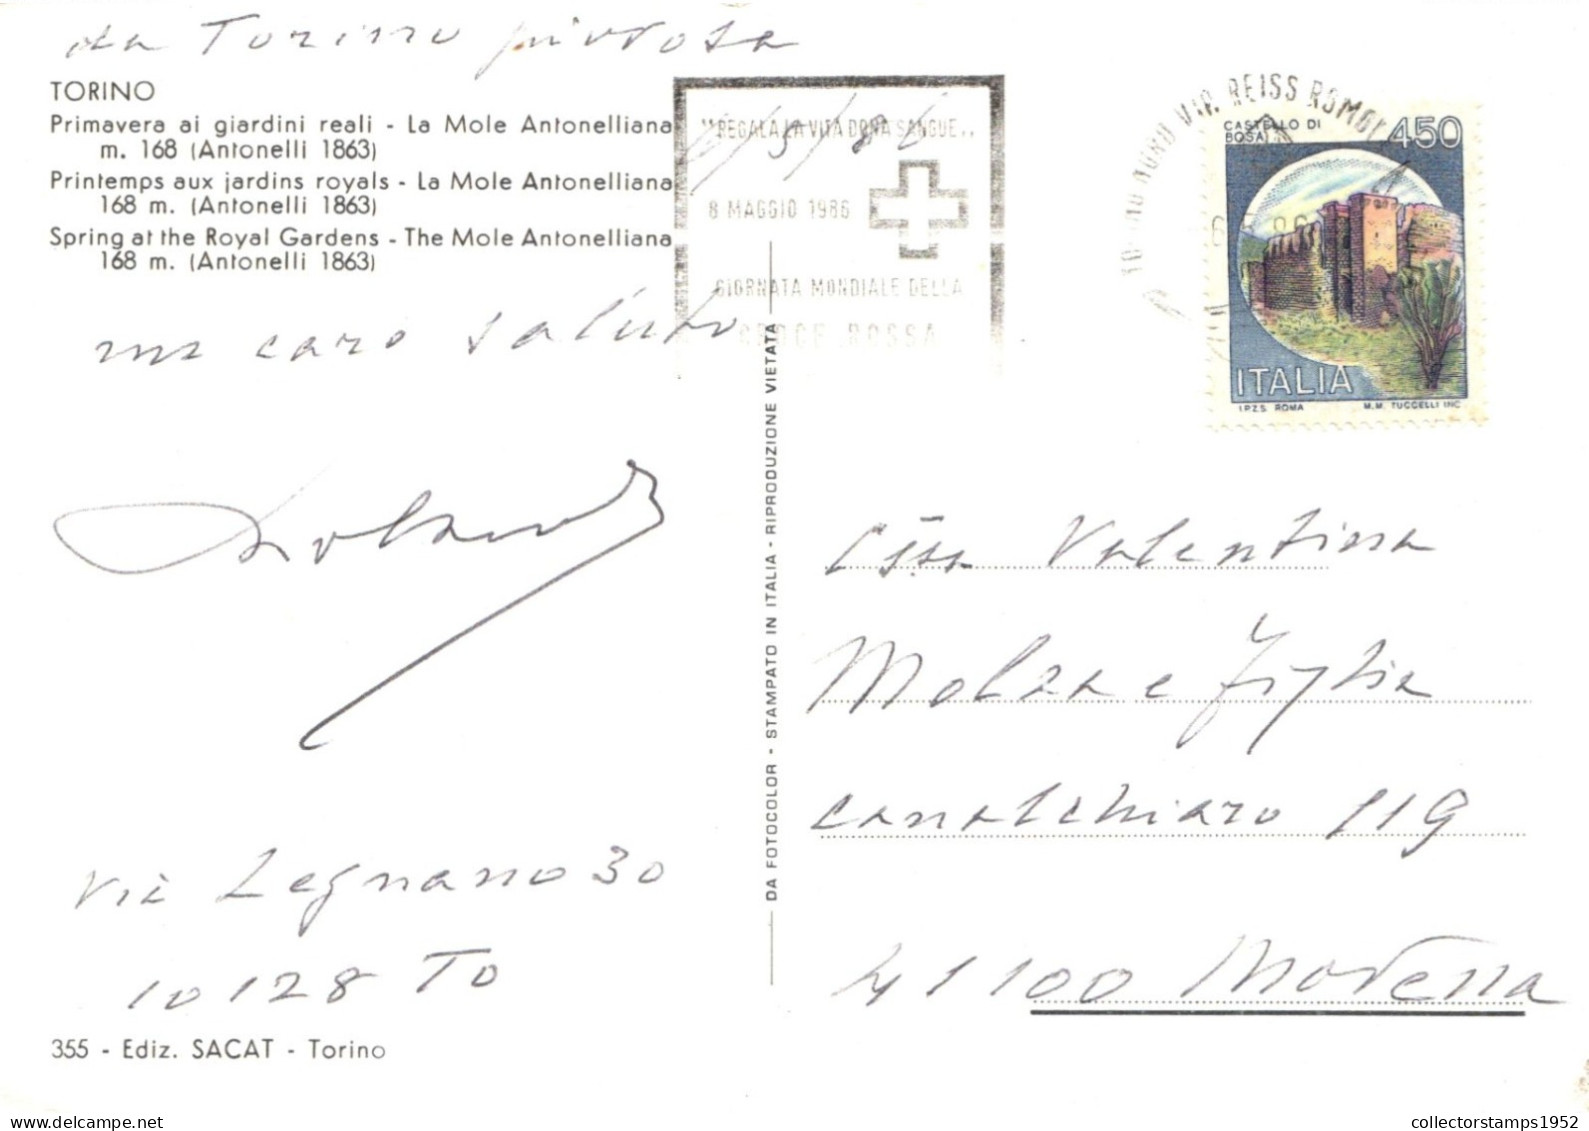 da Torino piovosa
TORINO
Primavera ai giardini reali - La Mole Antonelliana
m. 168 (Antonelli 1863)
Printemps aux jardins royals - La Mole Antonelliana
168 m. (Antonelli 1863)
Spring at the Royal Gardens - The Mole Antonelliana
168 m. (Antonelli 1863)
un caro saluto
via Legnano 30
10128 To
355 - Ediz. SACAT - Torino
DA FOTOCOLOR - STAMPATO IN ITALIA - RIPRODUZIONE VIETATA
"REGALA LA VITA DONA SANGUE"
8 MAGGIO 1986
GIORNATA MONDIALE DELLA
CROCE ROSSA
NORD VIR. REISS ROMOLI
CASTELLO DI
BOSA
450
ITALIA
I.P.Z.S. ROMA M.M. TUCCELLI INC.
Valentina
Molza e figlia
Canalchiaro 119
41100 Modena
collectorstamps1952